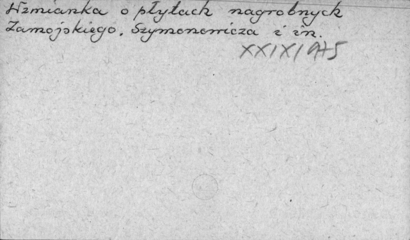 Wzmianka o płytach nagrobnych
Zamojskiego, Szymonowicza i in.